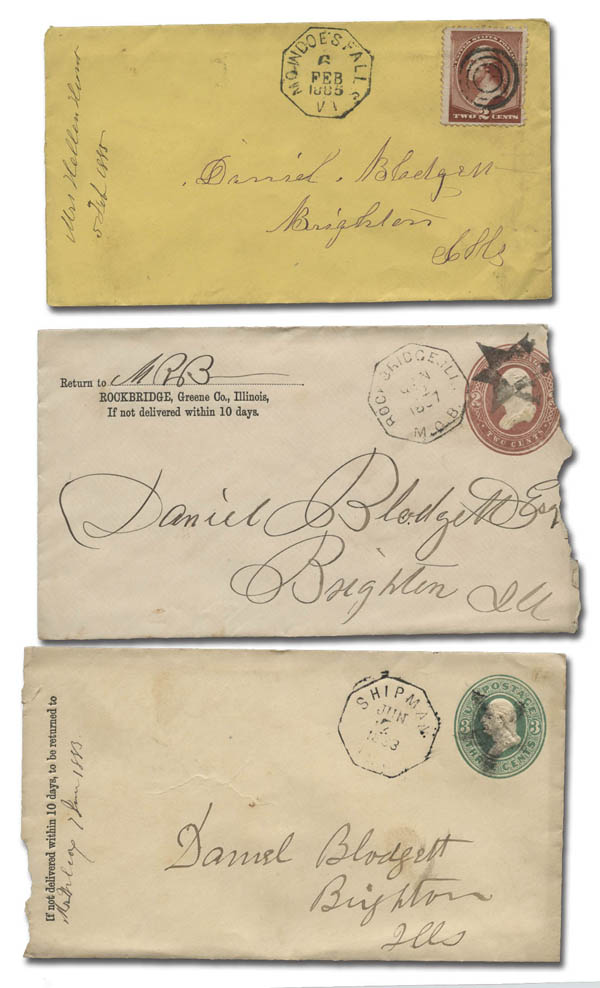 MOWDOE'S FALLS
6
FEB
1885
VA
TWO 2 CENTS
5 Feb 1885
Daniel Blodgett
Brighton
Ills
Return to MRB
ROCKBRIDGE, Greene Co., Illinois,
If not delivered within 10 days.
ROCKBRIDGE, ILL.
M.O.B.
2
TWO CENTS
Daniel Blodgett Esq
Brighton Ill
If not delivered within 10 days, to be returned to
7 June 1883
SHIPMAN
JUN
1883
U.S. POSTAGE
3
THREE CENTS
Daniel Blodgett
Brighton
Ills